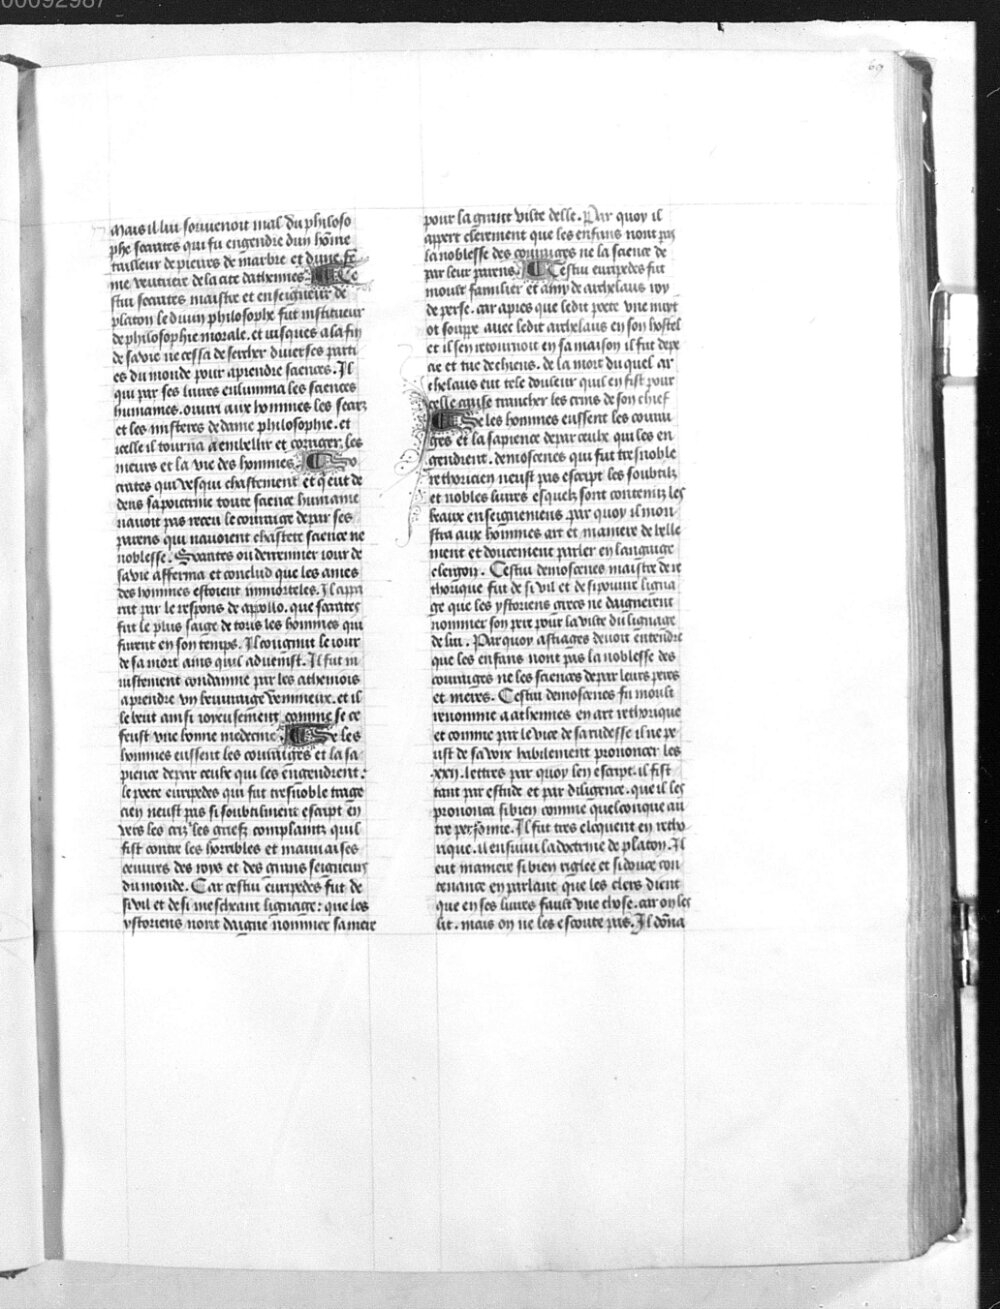 00092987
69
Mais il lui souvenoit mal du philoso
phe socrates qui fu engendre dun hom̄e
tailleur de pierres de marbre et dune fe
me ventriere de la cite dathennes. Ce
stui socrates maistre et enseigneur de
platon le divin philosophe fut instituteur
de philosophie morale. et iusques a la fin
de sa vie ne cessa de sercher diverses parti
es du monde pour aprendre sciences. Il
qui par ses livres enlumina les sciences
humaines. ouvri aux hommes les secrez
et les misteres de dame philosophie. et
icelle il tourna a embellir et corriger les
meurs et la vie des hommes. So
crates qui vesqui chastement et q̄ eut de
dens sa poictrine toute science humaine
navoit pas receu le couraige de par ses
parens qui navoient chastete science ne
noblesse. Socrates ou derrennier iour de
sa vie afferma et conclud que les ames
des hommes estoient immorteles. Il appa
rut par le respons de appollo. que socrates
fut le plus saige de tous les hommes qui
furent en son temps. Il congnut le iour
de sa mort ains quil advenist. Il fut in
iustement condamne par les atheniois
a prendre un beuvraige venimeux. et il
le beut ainsi ioyeusement comme se ce
feust une bonne medecine. Se les
hommes eussent les couraiges et la sa
pience de par ceulx qui les engendrent.
le poete euripedes qui fut tresnoble trage
cien neust pas si soubtilment escript en
vers les criz les griefz complaintz quil
fist contre les horribles et mauvaises
œuvres des roys et des grans seigneurs
du monde. Car cestui euripedes fut de
si vil et de si meschant lignage: que les
ystoriens nont daigne nommer sa mere
pour la grant vilte delle. Par quoy il
appert clerement que les enfans nont pas
la noblesse des couraiges ne la science de
par leur parens. Cestui euripedes fut
moult familier et amy de archelaus roy
de perse. car apres que ledit poete une nuyt
ot souppe avec ledit archelaus en son hostel
et il sen retournoit en sa maison il fut depe
cie et tue de chiens. de la mort du quel ar
chelaus eut tele douleur quil en fist pour
celle cause trancher les crins de son chief
Se les hommes eussent les coura
ges et la sapience de par ceulx qui les en
gendrent. demoscenes qui fut tresnoble
rethoricien neust pas escript les soubtilz
et nobles livres esquelz sont contenuz les
beaux enseignemens par quoy il mon
stra aux hommes art et maniere de belle
ment et doucement parler en language
clergon. Cestui demoscenes maistre de re
thorique fut de si vil et de si povre ligna
ge que les ystoriens grecs ne daignerent
nommer son pere pour la vilte du lignage
de lui. Par quoy astiages devoit entendre
que les enfans nont pas la noblesse des
couraiges ne les sciences de par leurs peres
et meres. Cestui demoscenes fu moult
renomme a athennes en art rethorique
et comme par le vice de sa rudesse il ne pe
ust de sa voix habilement prononcer les
.xxij. lettres par quoy len escript. il fist
tant par estude et par diligence. que il les
prononca si bien comme quelconque au
tre personne. Il fut tres eloquent en retho
rique. il ensuivi la doctrine de platon. Il
eut maniere si bien riglee et si doulce con
tenance en parlant que les clers dient
que en ses livres fault une chose. car on les
lit. mais on ne les escoute pas. Il dōna